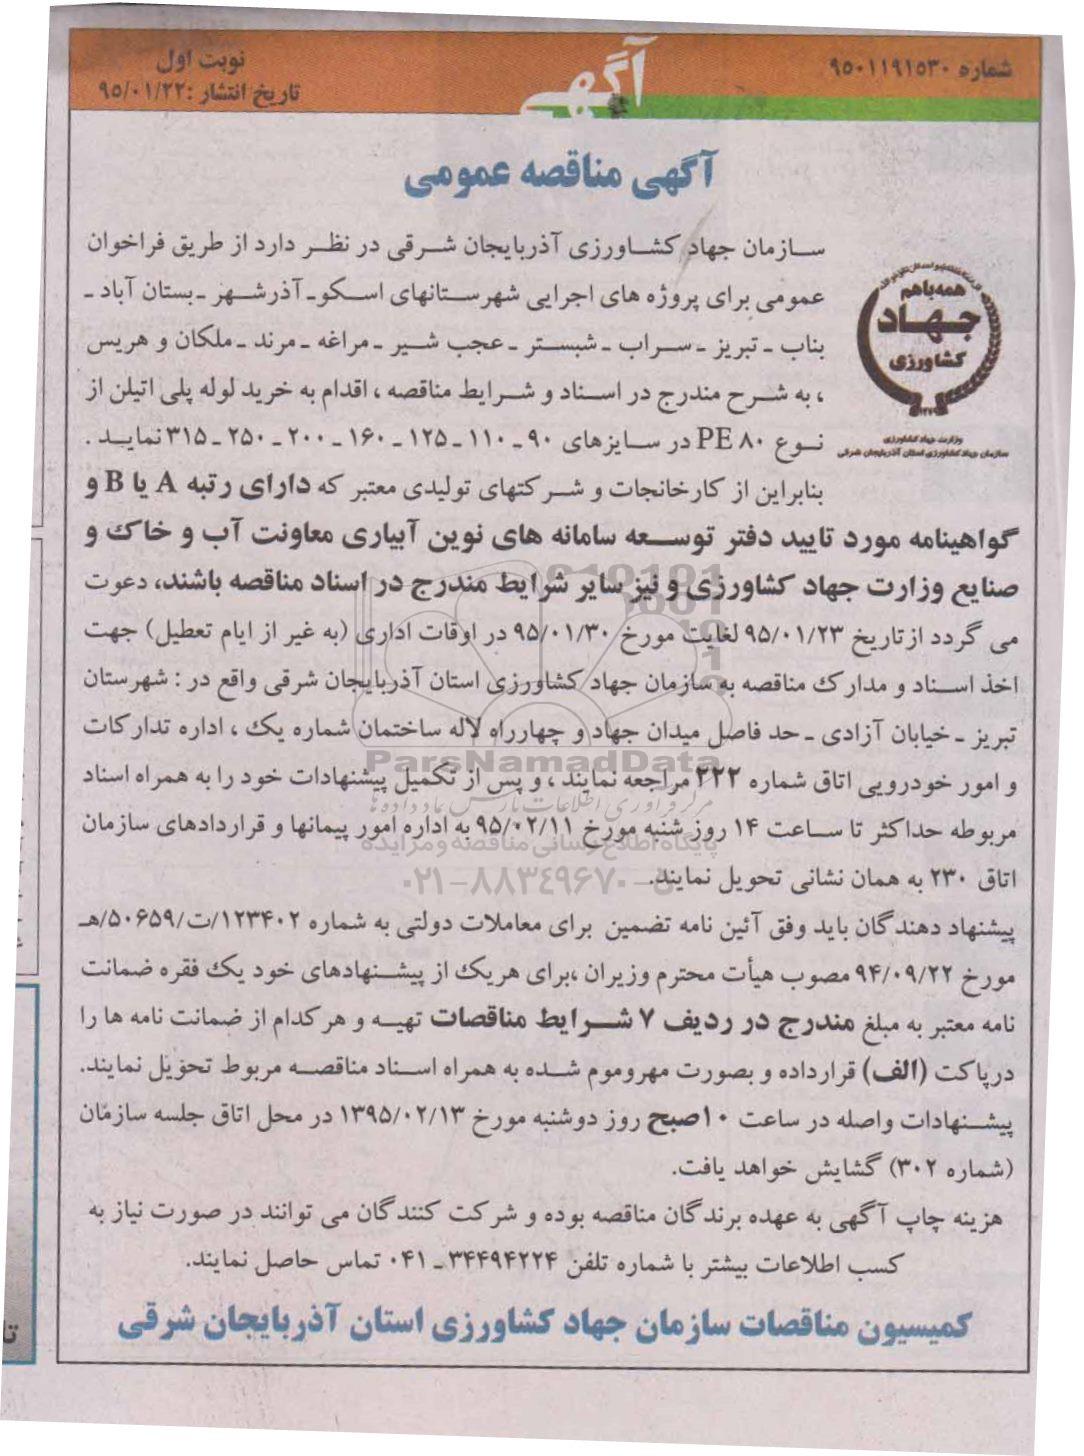 شماره ۹۵۰۱۱۹۱۵۳۰
آگهی
نوبت اول
تاریخ انتشار :۹۵/۰۱/۲۲
آگهی مناقصه عمومی
همه با هم
جهاد
کشاورزی
وزارت جهاد کشاورزی
سازمان جهاد کشاورزی استان آذربایجان شرقی
سازمان جهاد کشاورزی آذربایجان شرقی در نظر دارد از طریق فراخوان
عمومی برای پروژه های اجرایی شهرستانهای اسکو ـ آذرشهر ـ بستان آباد ـ
بناب ـ تبریز ـ سراب ـ شبستر ـ عجب شیر ـ مراغه ـ مرند ـ ملکان و هریس
، به شرح مندرج در اسناد و شرایط مناقصه ، اقدام به خرید لوله پلی اتیلن از
نوع PE ۸۰ در سایزهای ۹۰ ـ ۱۱۰ ـ ۱۲۵ ـ ۱۶۰ ـ ۲۰۰ ـ ۲۵۰ ـ ۳۱۵ نماید .
بنابراین از کارخانجات و شرکتهای تولیدی معتبر که دارای رتبه A یا B و
گواهینامه مورد تایید دفتر توسعه سامانه های نوین آبیاری معاونت آب و خاک و
صنایع وزارت جهاد کشاورزی و نیز سایر شرایط مندرج در اسناد مناقصه باشند، دعوت
می گردد از تاریخ ۹۵/۰۱/۲۳ لغایت مورخ ۹۵/۰۱/۳۰ در اوقات اداری (به غیر از ایام تعطیل) جهت
اخذ اسناد و مدارک مناقصه به سازمان جهاد کشاورزی استان آذربایجان شرقی واقع در : شهرستان
تبریز ـ خیابان آزادی ـ حد فاصل میدان جهاد و چهارراه لاله ساختمان شماره یک ، اداره تدارکات
و امور خودرویی اتاق شماره ۲۲۲ مراجعه نمایند ، و پس از تکمیل پیشنهادات خود را به همراه اسناد
مربوطه حداکثر تا ساعت ۱۴ روز شنبه مورخ ۹۵/۰۲/۱۱ به اداره امور پیمانها و قراردادهای سازمان
اتاق ۲۳۰ به همان نشانی تحویل نمایند.
پیشنهاد دهندگان باید وفق آئین نامه تضمین برای معاملات دولتی به شماره ۱۲۳۴۰۲/ت/۵۰۶۵۹/هـ
مورخ ۹۴/۰۹/۲۲ مصوب هیأت محترم وزیران ،برای هریک از پیشنهادهای خود یک فقره ضمانت
نامه معتبر به مبلغ مندرج در ردیف ۷ شرایط مناقصات تهیه و هر کدام از ضمانت نامه ها را
درپاکت (الف) قرارداده و بصورت مهروموم شده به همراه اسناد مناقصه مربوط تحویل نمایند.
پیشنهادات واصله در ساعت ۱۰صبح روز دوشنبه مورخ ۱۳۹۵/۰۲/۱۳ در محل اتاق جلسه سازمان
(شماره ۳۰۲) گشایش خواهد یافت.
هزینه چاپ آگهی به عهده برندگان مناقصه بوده و شرکت کنندگان می توانند در صورت نیاز به
کسب اطلاعات بیشتر با شماره تلفن ۳۴۴۹۴۲۲۴ ـ ۰۴۱ تماس حاصل نمایند.
کمیسیون مناقصات سازمان جهاد کشاورزی استان آذربایجان شرقی
ParsNamadData
مرکز فرآوری اطلاعات پارس نماد داده ها
پایگاه اطلاع رسانی مناقصه و مزایده
۰۲۱-۸۸۳۴۹۶۷۰-۵
تا